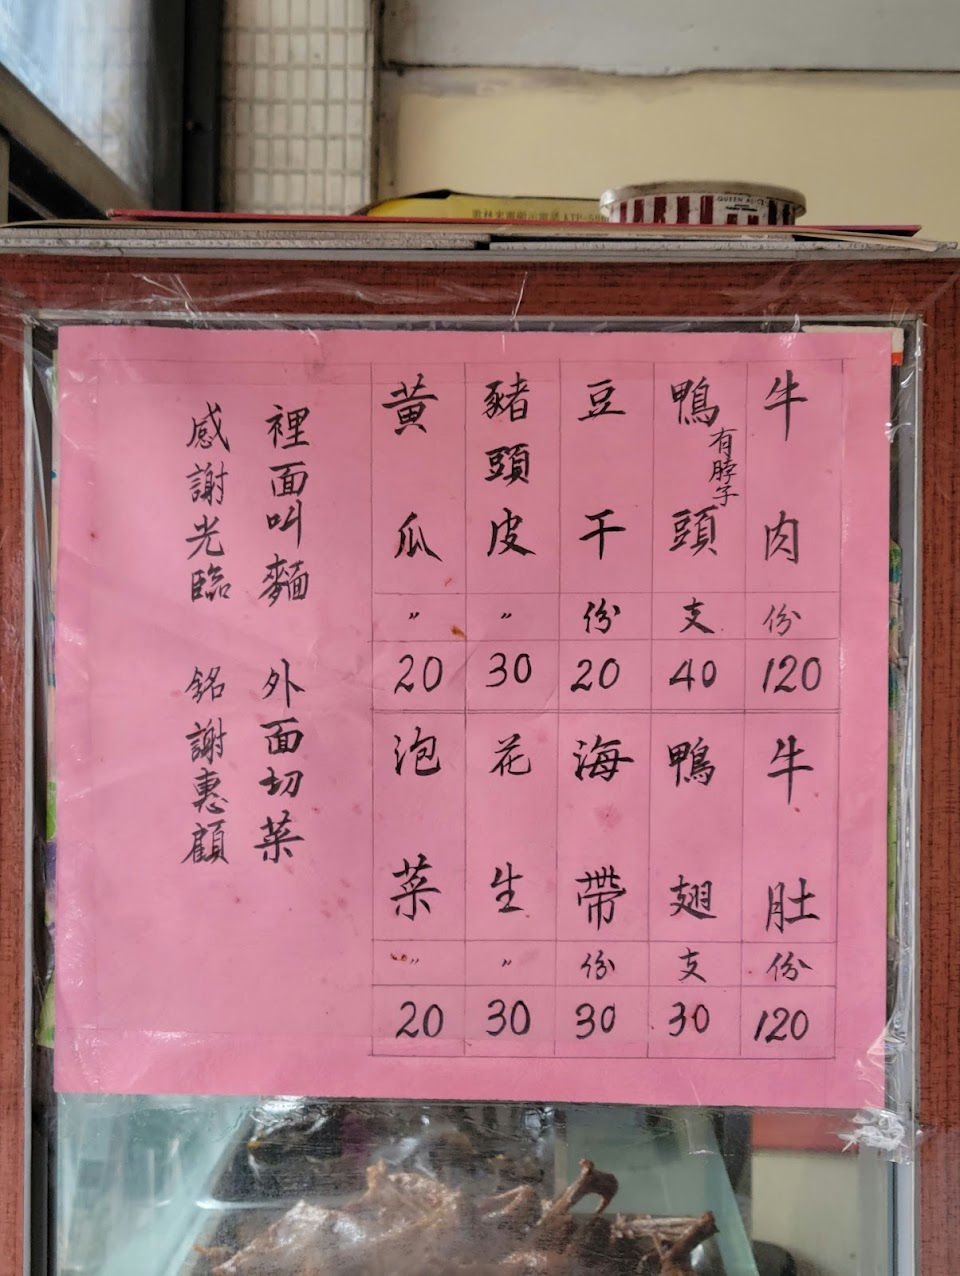 QUEEN ALICE
牛肉 份 120
鴨頭 有脖子 支 40
豆干 份 20
豬頭皮 〃 30
黃瓜 〃 20
牛肚 份 120
鴨翅 支 30
海帶 份 30
花生 〃 30
泡菜 〃 20
裡面叫麵 外面切菜
感謝光臨 銘謝惠顧